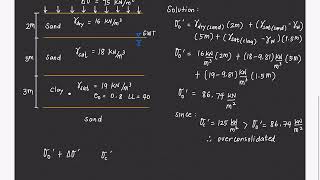 Δσ = 75 kN/m²
2m
Sand
γdry = 16 kN/m³
GWT
Sand
γsat = 18 kN/m³
5m
3m
Clay
γsat = 19 kN/m³
e₀ = 0.8 LL = 40
sand
σ₀' + Δσ'
σc'
Solution:
σ₀' = γdry(sand) (2m) + (γsat(sand) - γw)
(5m) + (γsat(clay) - γw) (1.5m)
σ₀' = 16 kN/m³ (2m) + (18-9.81) kN/m³ (5m)
+ (19-9.81) kN/m³ (1.5m)
σ₀' = 86.74 kN/m²
since:
σc' = 125 kN/m² > σ₀' = 86.74 kN/m²
∴ overconsolidated